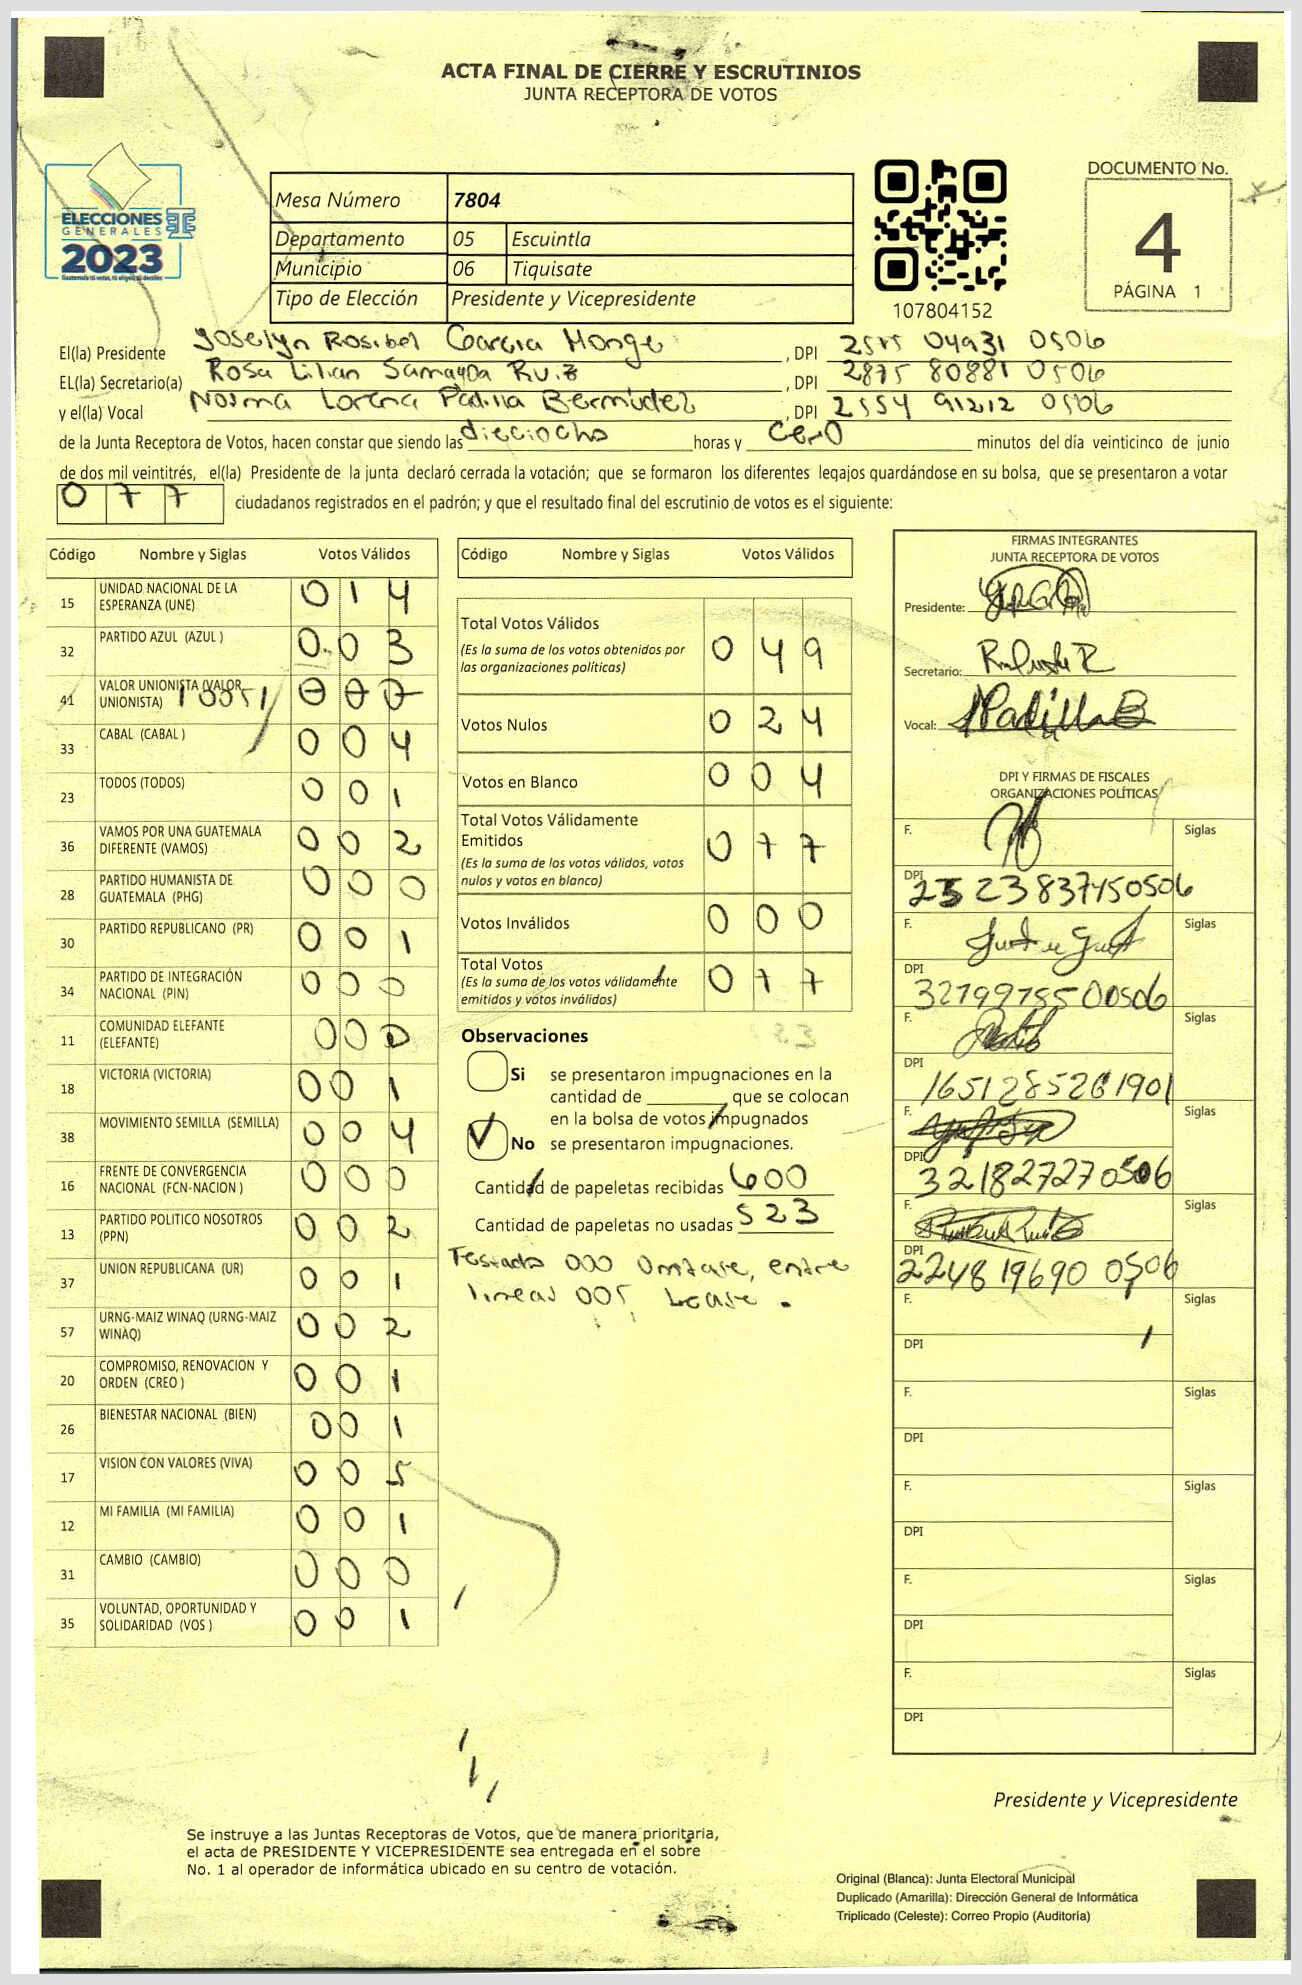 ACTA FINAL DE CIERRE Y ESCRUTINIOS
JUNTA RECEPTORA DE VOTOS
ELECCIONES
GENERALES
2023
Mesa Número 7804
Departamento 05 Escuintla
Municipio 06 Tiquisate
Tipo de Elección Presidente y Vicepresidente
107804152
DOCUMENTO No.
4
PÁGINA 1
El(la) Presidente Joselyn Rosibel García Monge, DPI 2575 04931 0506
EL(la) Secretario(a) Rosa Lilian Samayoa Ruiz, DPI 2875 80881 0506
y el(la) Vocal Norma Lorena Padilla Bermúdez, DPI 2554 91212 0506
de la Junta Receptora de Votos, hacen constar que siendo las dieciocho horas y cero minutos del día veinticinco de junio
de dos mil veintitrés, el(la) Presidente de la junta declaró cerrada la votación; que se formaron los diferentes legajos quardándose en su bolsa, que se presentaron a votar
077 ciudadanos registrados en el padrón; y que el resultado final del escrutinio de votos es el siguiente:
Código Nombre y Siglas Votos Válidos
15 UNIDAD NACIONAL DE LA ESPERANZA (UNE) 014
32 PARTIDO AZUL (AZUL ) 003
41 VALOR UNIONISTA (VALOR UNIONISTA) 005 000
33 CABAL (CABAL ) 004
23 TODOS (TODOS) 001
36 VAMOS POR UNA GUATEMALA DIFERENTE (VAMOS) 002
28 PARTIDO HUMANISTA DE GUATEMALA (PHG) 000
30 PARTIDO REPUBLICANO (PR) 001
34 PARTIDO DE INTEGRACIÓN NACIONAL (PIN) 000
11 COMUNIDAD ELEFANTE (ELEFANTE) 000
18 VICTORIA (VICTORIA) 001
38 MOVIMIENTO SEMILLA (SEMILLA) 004
16 FRENTE DE CONVERGENCIA NACIONAL (FCN-NACION ) 000
13 PARTIDO POLITICO NOSOTROS (PPN) 002
37 UNION REPUBLICANA (UR) 001
57 URNG-MAIZ WINAQ (URNG-MAIZ WINAQ) 002
20 COMPROMISO, RENOVACION Y ORDEN (CREO ) 001
26 BIENESTAR NACIONAL (BIEN) 001
17 VISION CON VALORES (VIVA) 005
12 MI FAMILIA (MI FAMILIA) 001
31 CAMBIO (CAMBIO) 000
35 VOLUNTAD, OPORTUNIDAD Y SOLIDARIDAD (VOS ) 001
Código Nombre y Siglas Votos Válidos
Total Votos Válidos 049
(Es la suma de los votos obtenidos por
las organizaciones políticas)
Votos Nulos 024
Votos en Blanco 004
Total Votos Válidamente
Emitidos 077
(Es la suma de los votos válidos, votos
nulos y votos en blanco)
Votos Inválidos 000
Total Votos 077
(Es la suma de los votos válidamente
emitidos y votos inválidos)
Observaciones
Si se presentaron impugnaciones en la
cantidad de ________ que se colocan
en la bolsa de votos impugnados
No se presentaron impugnaciones.
Cantidad de papeletas recibidas 600
Cantidad de papeletas no usadas 523
Testado 000 Omitase, entre
lineas 005, Lease.
FIRMAS INTEGRANTES
JUNTA RECEPTORA DE VOTOS
Presidente:
Secretario:
Vocal: NPadillaB
DPI Y FIRMAS DE FISCALES
ORGANIZACIONES POLÍTICAS
F. Siglas
DPI
F. Siglas
DPI
F. Siglas
DPI
F. Siglas
DPI 3218272700506
F. Siglas
DPI 2248196900506
F. Siglas
DPI
F. Siglas
DPI
F. Siglas
DPI
F. Siglas
DPI
F. Siglas
DPI
Presidente y Vicepresidente
Se instruye a las Juntas Receptoras de Votos, que de manera prioritaria,
el acta de PRESIDENTE Y VICEPRESIDENTE sea entregada en el sobre
No. 1 al operador de informática ubicado en su centro de votación.
Original (Blanca): Junta Electoral Municipal
Duplicado (Amarilla): Dirección General de Informática
Triplicado (Celeste): Correo Propio (Auditoría)